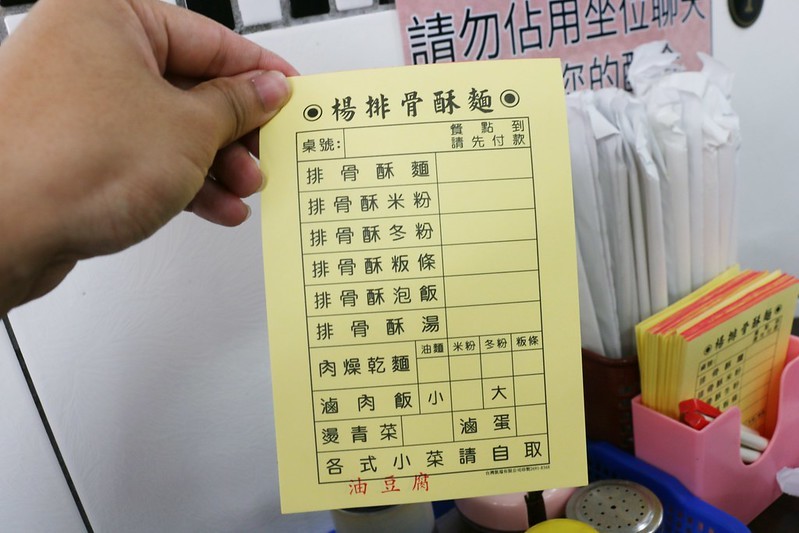 請勿佔用坐位聊天
您的配合
◉楊排骨酥麵◉
桌號:
餐點到
請先付款
排骨酥麵
排骨酥米粉
排骨酥冬粉
排骨酥粄條
排骨酥泡飯
排骨酥湯
肉燥乾麵 油麵 米粉 冬粉 粄條
滷肉飯 小 大
燙青菜 滷蛋
各式小菜請自取
油豆腐
◉楊排骨酥麵◉